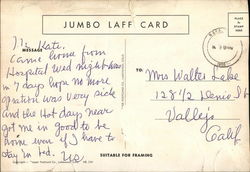 JUMBO LAFF CARD
PLACE
STAMP
HERE
MESSAGE
Hi Kate.
Came home from
Hospital Wed night been
in 7 days hope no more
operation was very sick
and the Hot days near
got me in good to be
home even if I have to
stay in bed.
TO:
Mrs Walter Lake
128 1/2 Denis St
Vallejo
Calif
SUITABLE FOR FRAMING